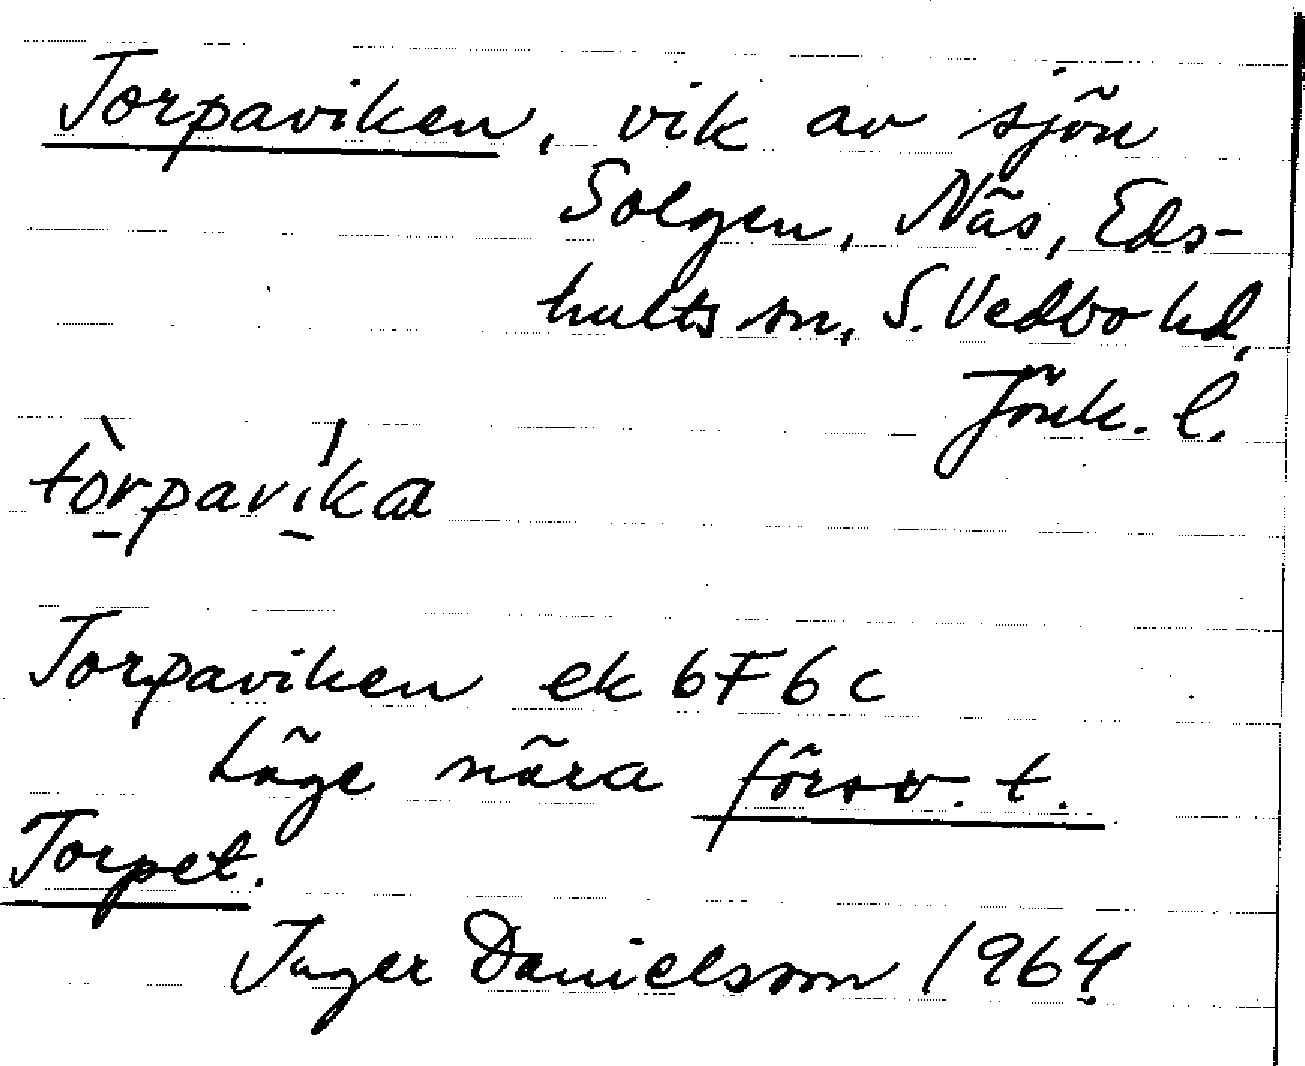 Torpaviken, vik av sjön
Solgen, Näs, Eds-
hults sn, S. Vedbo hd,
Jönk. l.
tòrpavíka
Torpaviken ek 6F6c
Läge nära försv. t.
Torpet.
Inger Danielsson 1964